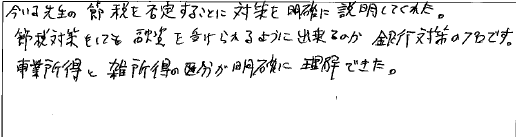 今いは先生の節税を否定することに対策を明確に説明してくれた。
節税対策をしても融資を受けられるように出来るのが銀行対策のプロです。
事業所得と雑所得の区分が明確に理解できた。